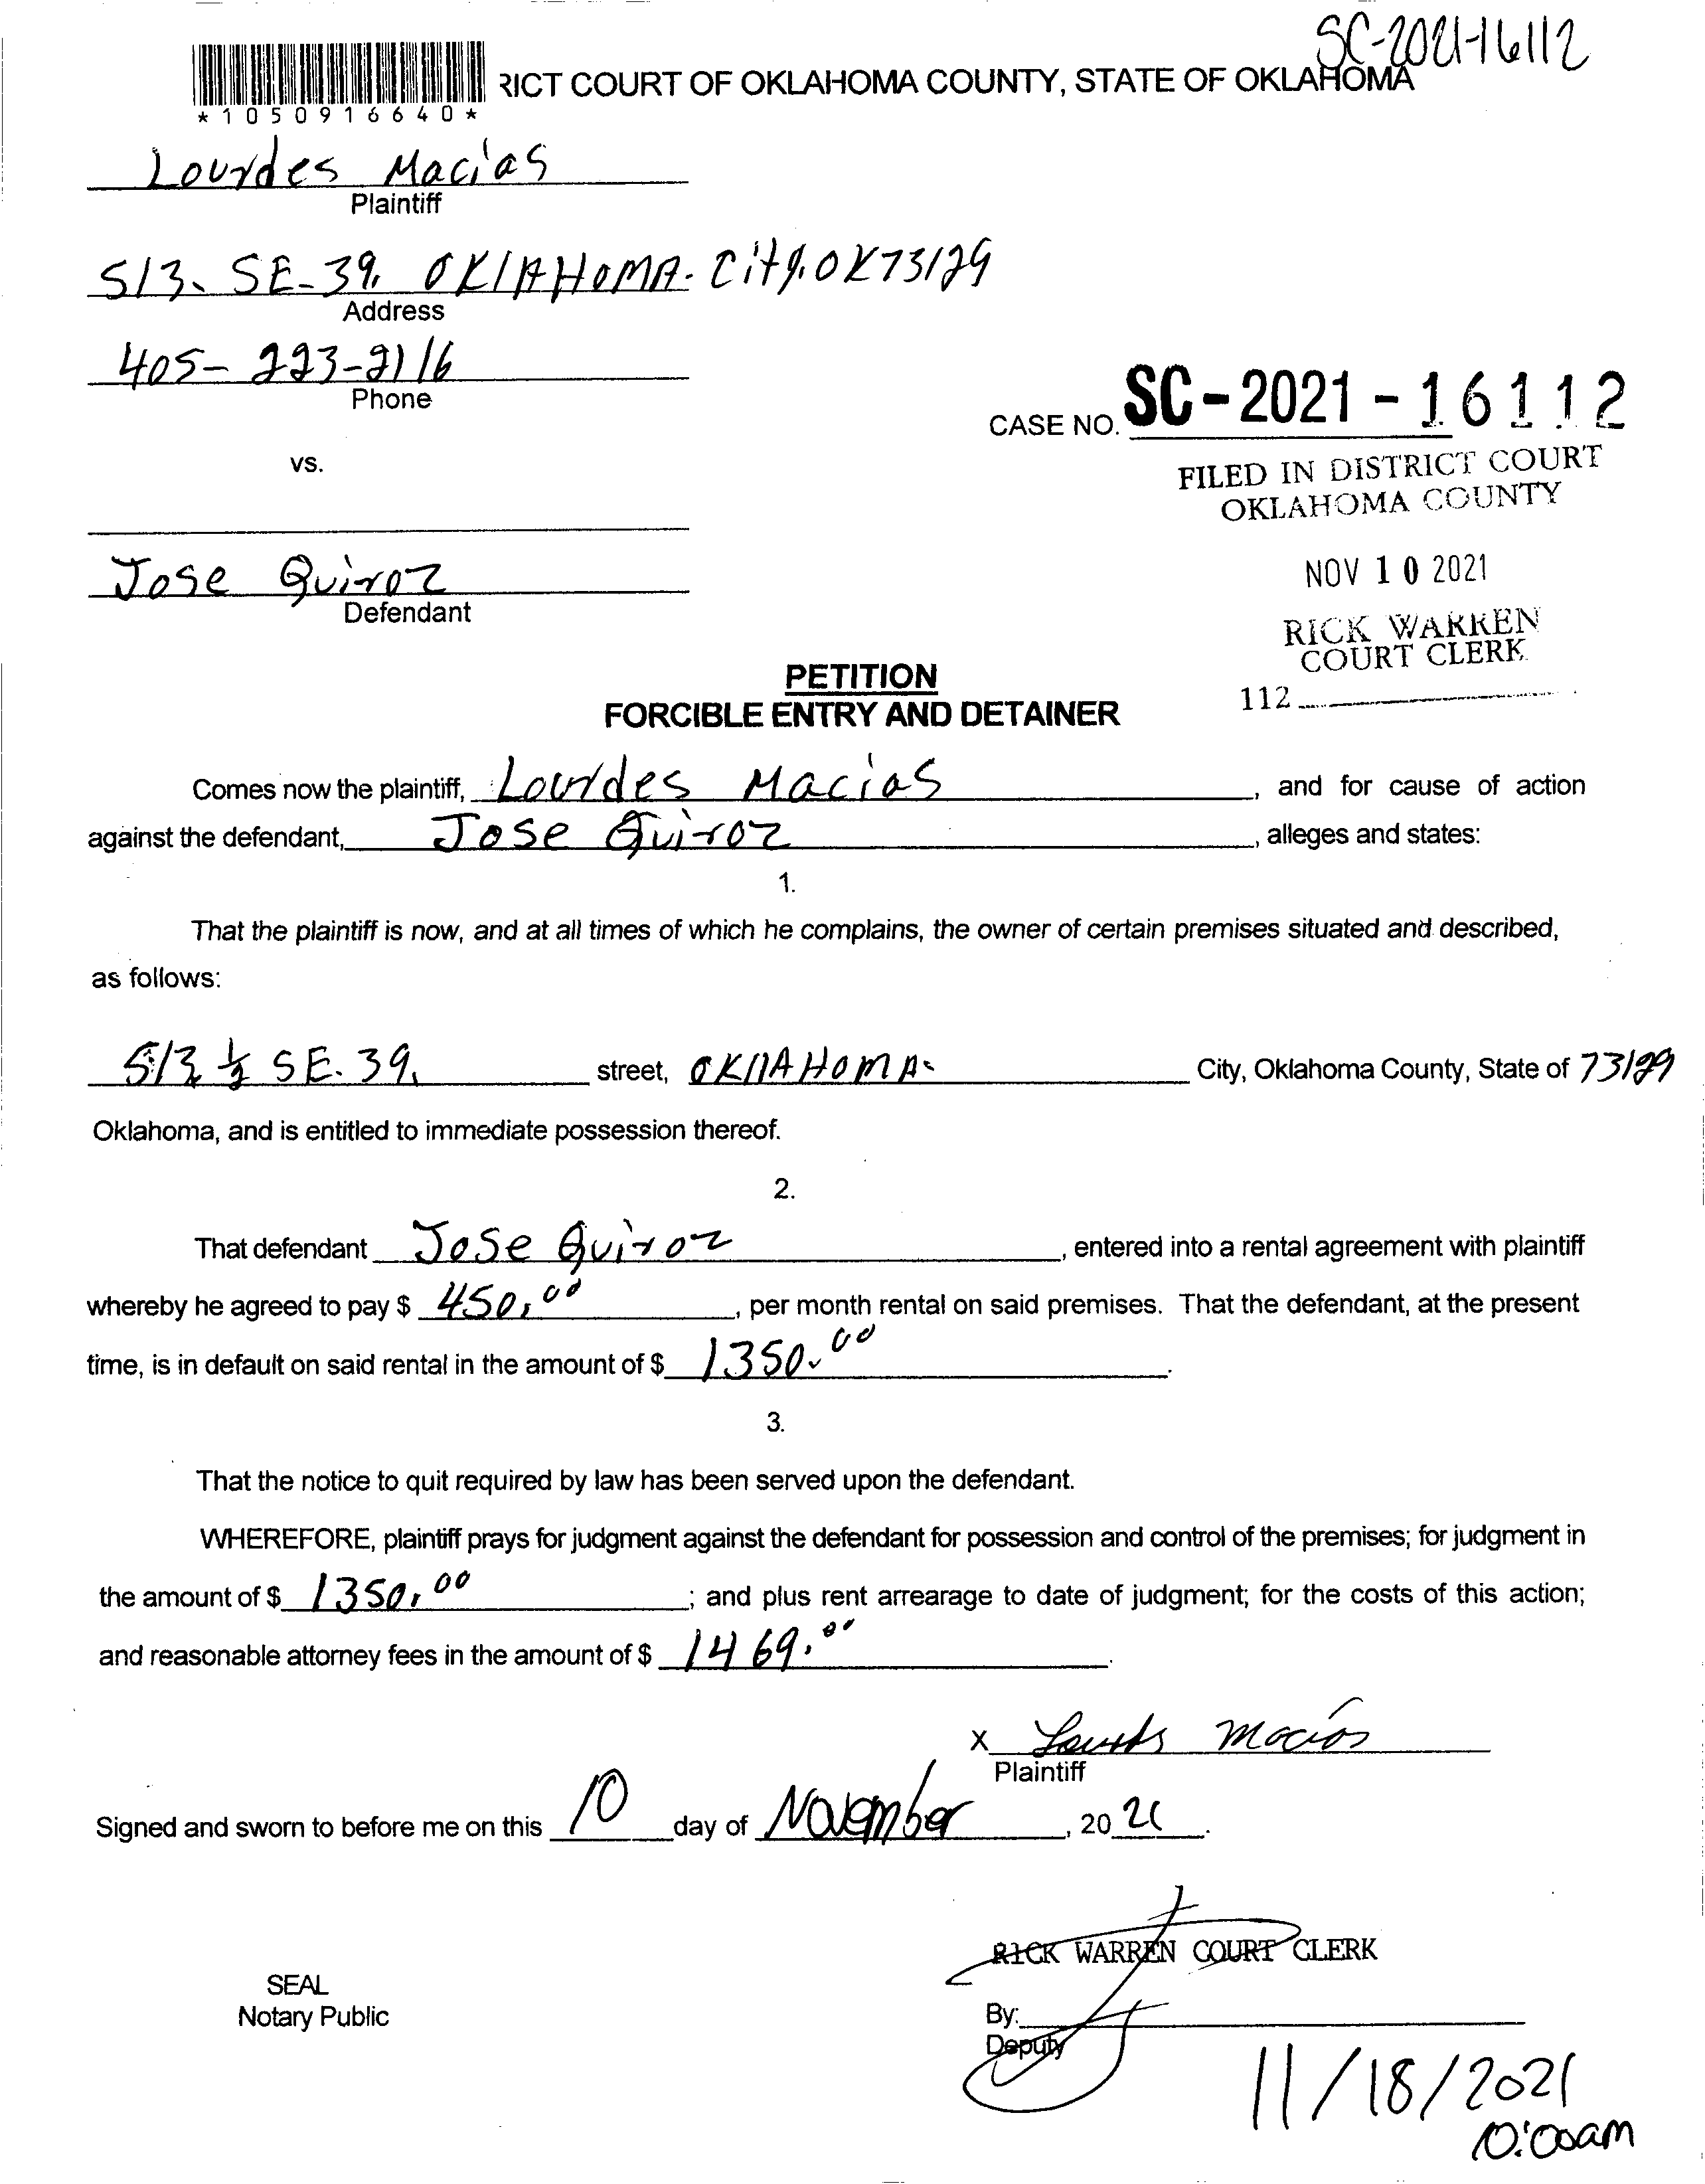 SC-2021-16112
RICT COURT OF OKLAHOMA COUNTY, STATE OF OKLAHOMA
*1050916640*
Lourdes Macias
Plaintiff
513. SE-39. OKlAHOMA. City. OK 73129
Address
405-223-2116
Phone
CASE NO. SC-2021-16112
vs.
FILED IN DISTRICT COURT
OKLAHOMA COUNTY
NOV 10 2021
Jose Quiroz
Defendant
RICK WARREN
COURT CLERK
112
PETITION
FORCIBLE ENTRY AND DETAINER
Comes now the plaintiff, Lourdes Macias, and for cause of action
against the defendant, Jose Quiroz, alleges and states:
1.
That the plaintiff is now, and at all times of which he complains, the owner of certain premises situated and described,
as follows:
513 ½ SE. 39. street, OKlAHOMA. City, Oklahoma County, State of 73129
Oklahoma, and is entitled to immediate possession thereof.
2.
That defendant Jose Quiroz, entered into a rental agreement with plaintiff
whereby he agreed to pay $ 450.00, per month rental on said premises. That the defendant, at the present
time, is in default on said rental in the amount of $ 1350.00.
3.
That the notice to quit required by law has been served upon the defendant.
WHEREFORE, plaintiff prays for judgment against the defendant for possession and control of the premises; for judgment in
the amount of $ 1350.00; and plus rent arrearage to date of judgment; for the costs of this action;
and reasonable attorney fees in the amount of $ 1469.00.
X Lourds Macias
Plaintiff
Signed and sworn to before me on this 10 day of November, 2021.
RICK WARREN COURT CLERK
SEAL
Notary Public
By:
Deputy
11/18/2021
10:00am